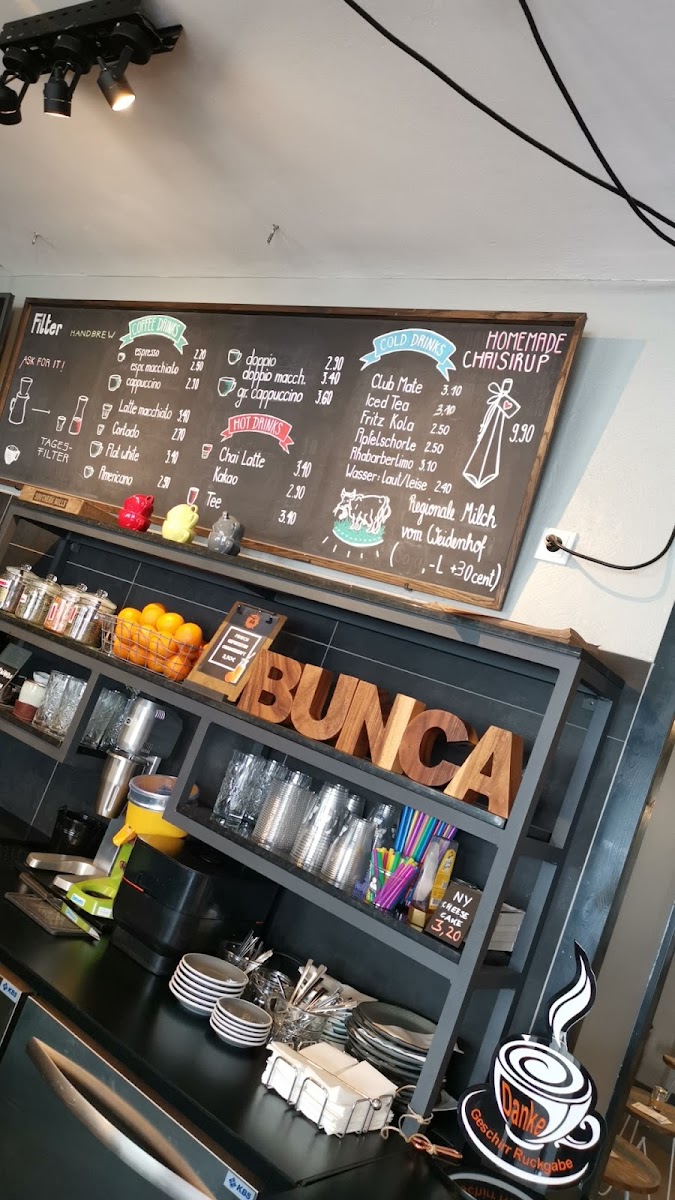 Filter HANDBREW
ASK FOR IT!
TAGES-
FILTER
COFFEE DRINKS
espresso 2.20
espr. macchiato 2.50
cappuccino 2.90
Latte macchiato 3.40
Cortado 2.70
Flat white 3.40
Americano 2.50
doppio 2.90
doppio macch. 3.40
gr. cappuccino 3.60
HOT DRINKS
Chai Latte 3.40
Kakao 2.90
Tee 3.40
COLD DRINKS
Club Mate 3.10
Iced Tea 3.10
Fritz Kola 2.50
Apfelschorle 2.50
Rhabarberlimo 3.10
Wasser: laut/leise 2.40
HOMEMADE
CHAISIRUP
9.90
Regionale Milch
vom Weidenhof
( , -L +30cent)
BUNCA
NY
CHEESE
CAKE
3,20
Danke
Geschirr Rückgabe
KBS
KBS